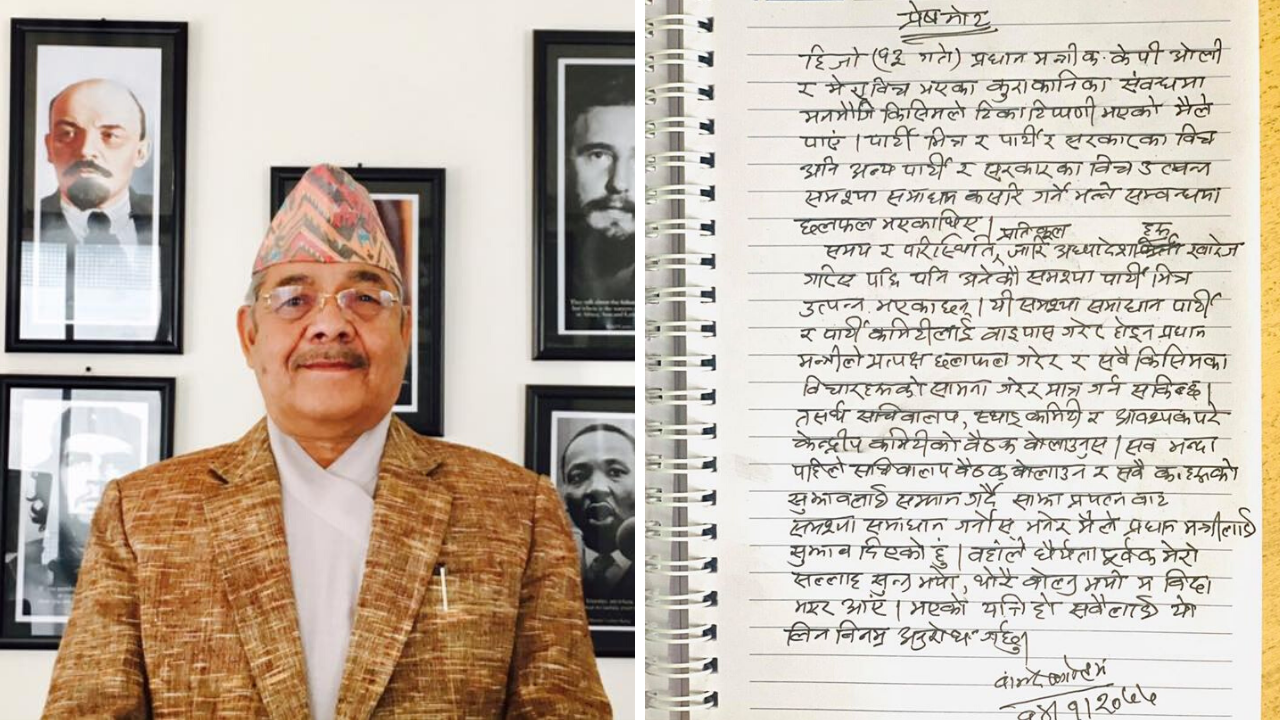 प्रेस नोट
हिजो (१३ गते) प्रधान मन्त्री क. के पी ओली
र मेरा विच भएका कुराकानिका संवन्धमा
मनमौजि किसिमले टिका टिप्पणी भएको मैले
पाएं । पार्टी भित्र र पार्टी र सरकारका विच
अनि अन्य पार्टी र सरकारका विच उत्पन्न
समश्या समाधान कसरि गर्ने भन्ने सम्वन्धमा
छलफल भएका थिए ।
समय र परिस्थिति प्रतिकूल जारि अध्यादेश हरू खारेज
गरिए पछि पनि अनेकौ समश्या पार्टी भित्र
उत्पन्न भएका छन् । यी समश्या समाधान पार्टी
र पार्टी कमिटीलाई वाइपास गरेर होइन प्रधान
मन्त्रीले प्रत्यक्ष छलफल गरेर र सवै किसिमका
विचारहरूको सामना गरेर मात्र गर्न सकिन्छ ।
तसर्थ सचिवालय, स्थाइ कमिटी र आवश्यक परे
केन्द्रीय कमिटीको वैठक वोलाउनुस । सव भन्दा
पहिले सचिवालय वैठक वोलाउन र सवै का.हरूको
सुझावलाई सम्मान गर्दै साझा प्रयत्न वाट
समश्या समाधान गर्नोस भनेर मैले प्रधान मन्त्रीलाई
सुझाव दिएको हुं । वहाँले धैर्यता पूर्वक मेरो
सल्लाह सुन्नु भयो, थोरै वोल्नु भयो म विदा
भएर आएं । भएको यत्ति हो सवैलाई यो
लिन विनम्र अनुरोध गर्छु ।